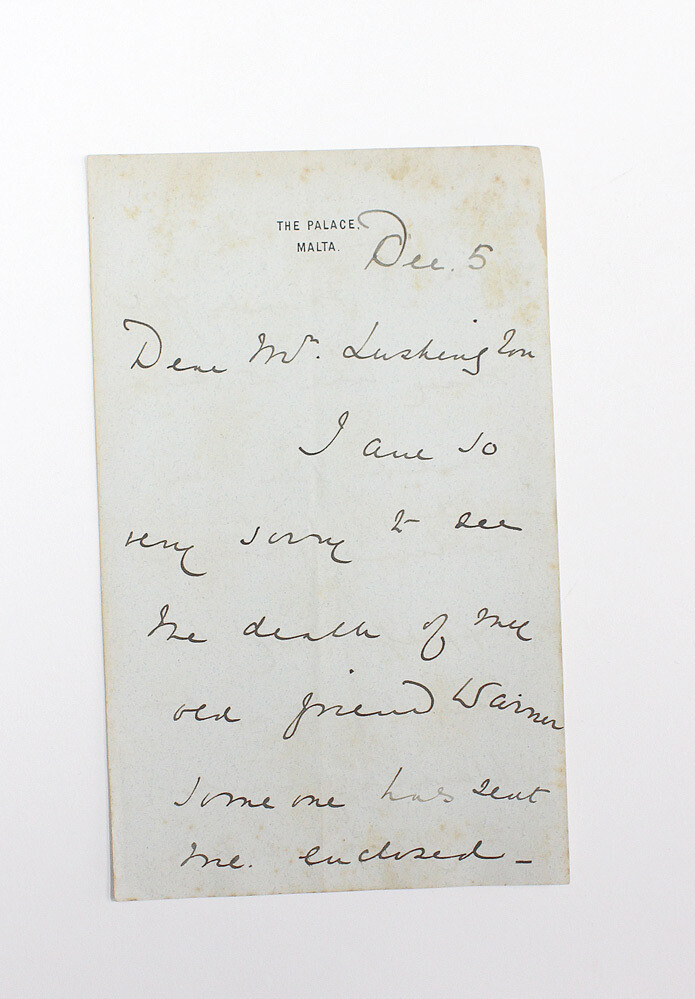 THE PALACE,
MALTA.
Dec. 5
Dear Mr. Lushington
I am so
very sorry to see
the death of my
old friend Warner
some one has sent
me. enclosed –